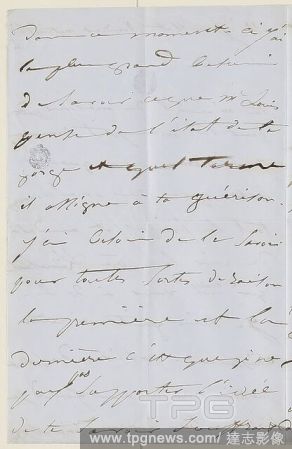 Dans ce moments ci j'ai
le plus grand besoin
de savoir ce que Mr Louis
pense de l'état de ta
gorge et quel terme
il assigne à ta guérison.
j'ai besoin de le savoir
pour toutes sortes de raison
la première et la
dernière c'est que je ne
puis pas supporter l'idée
de te savoir souffrant
TPG
www.tpgnews.com 達志影像